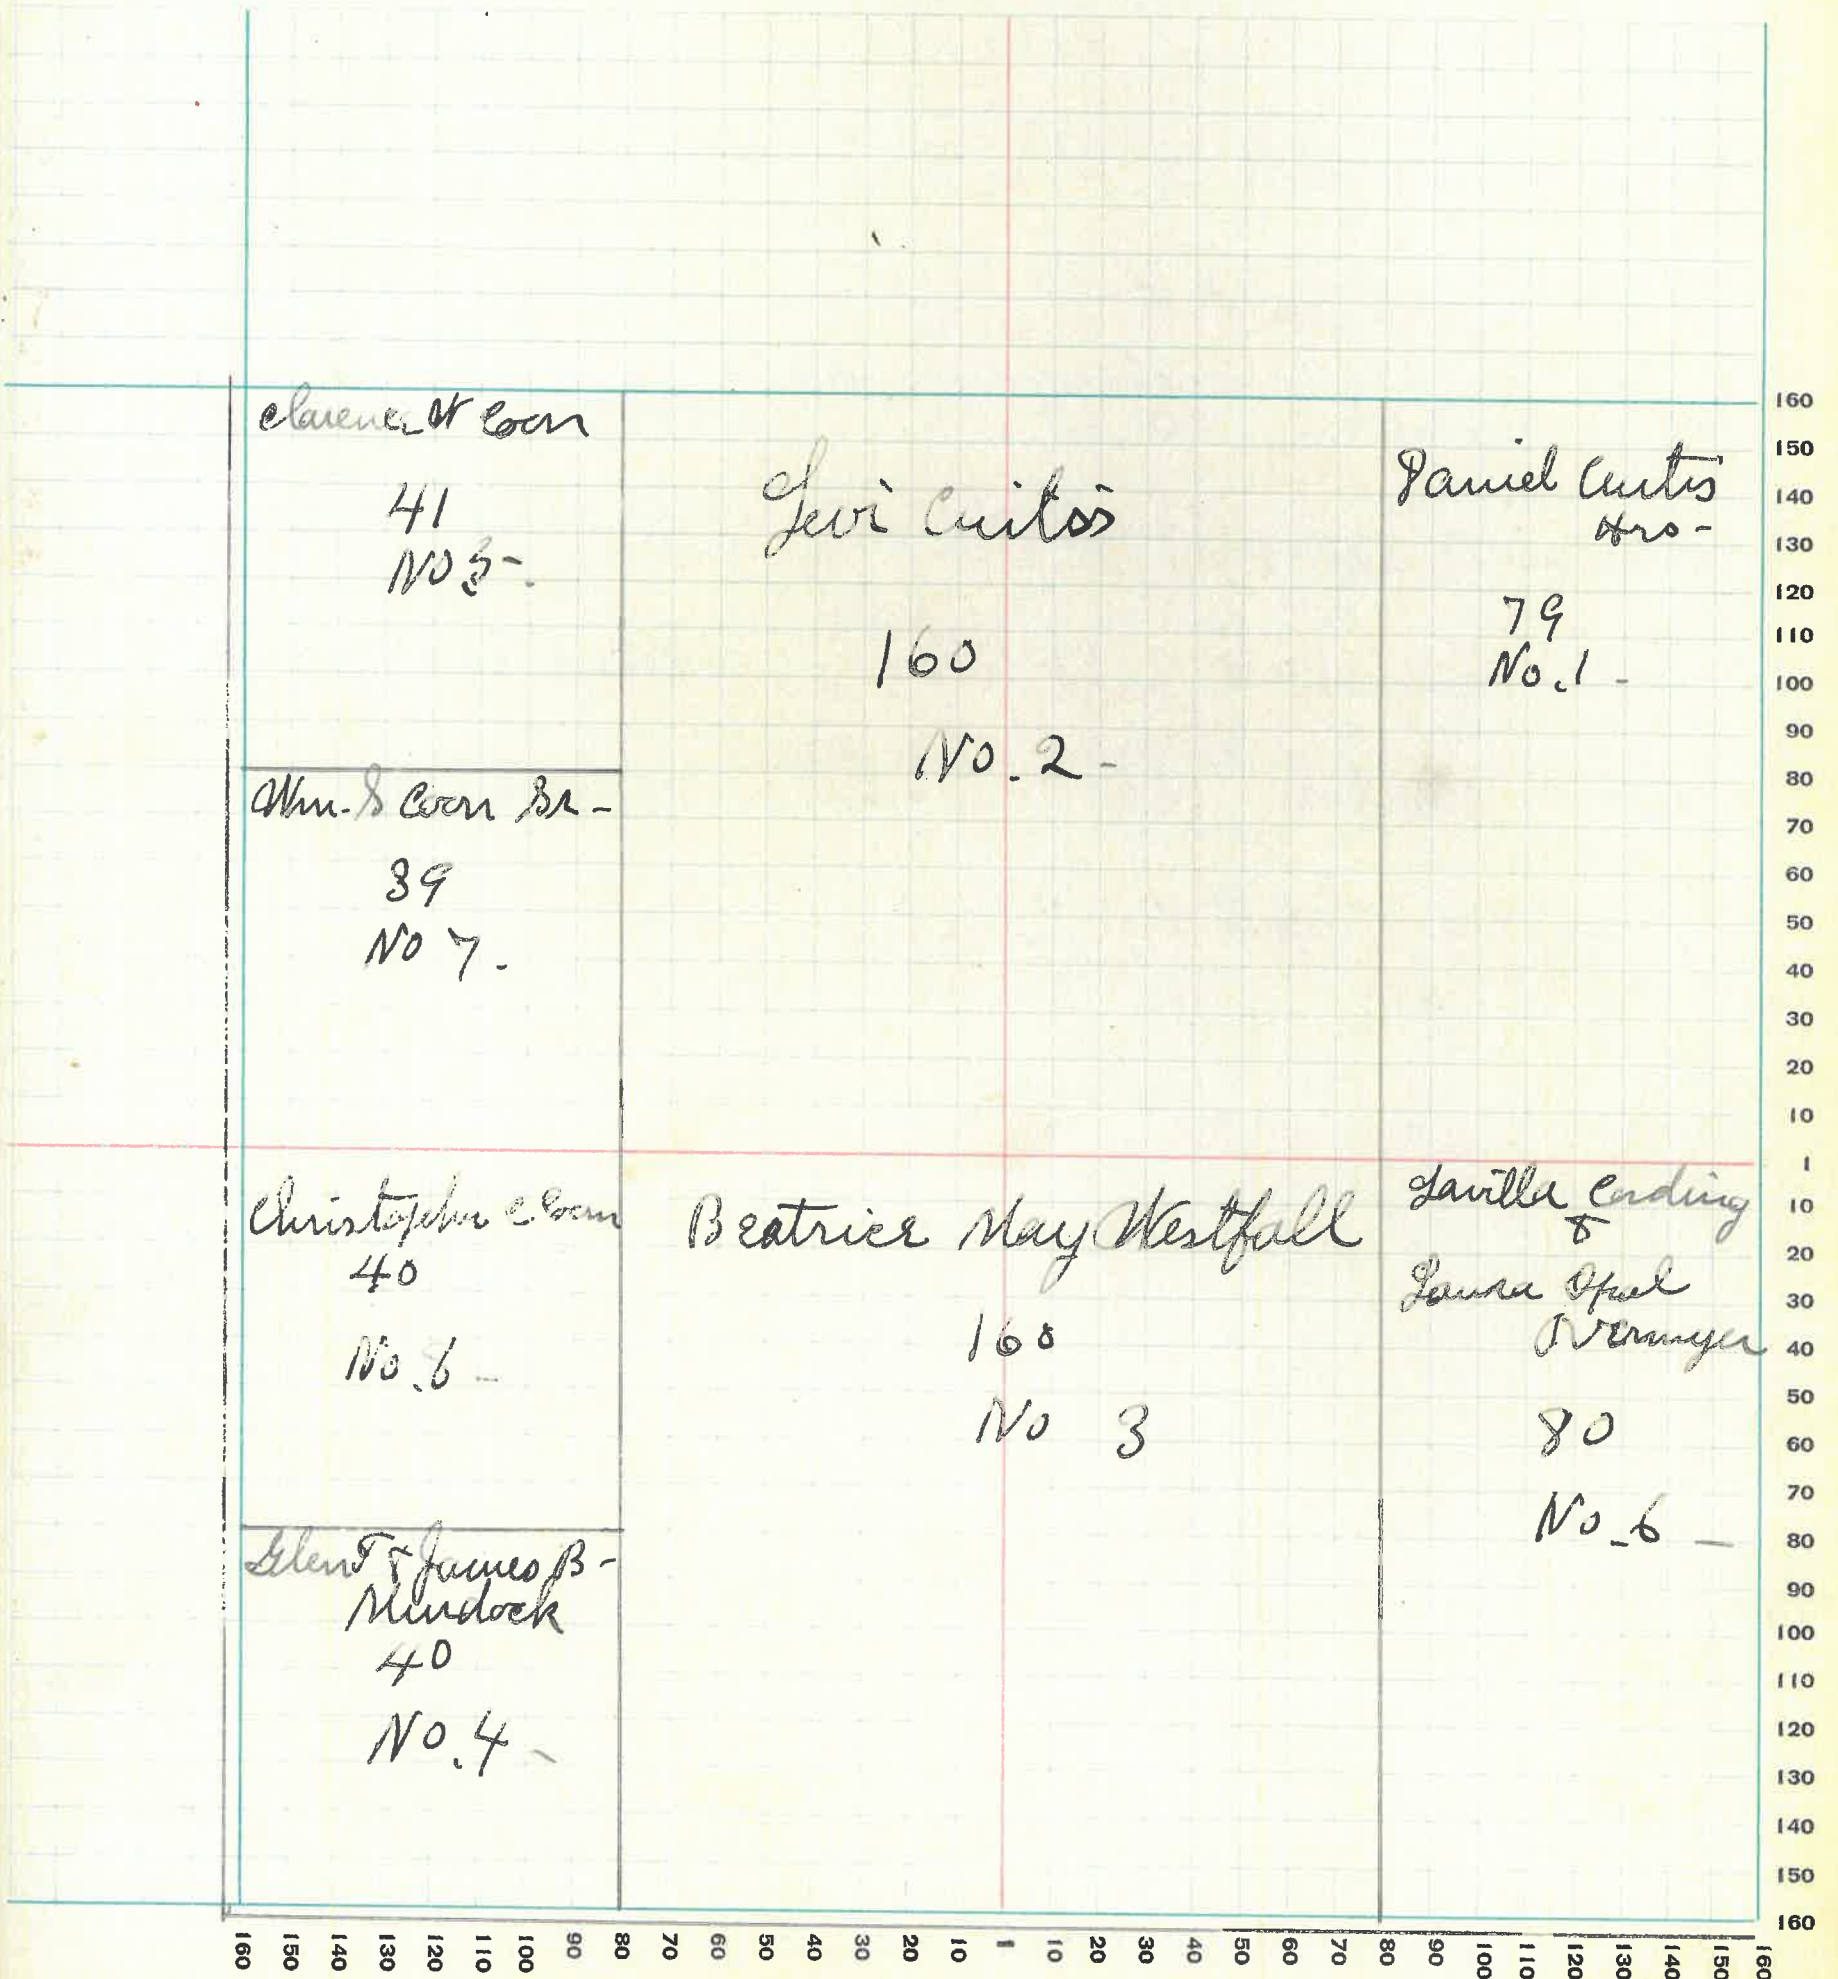 Clarence W Coon
41
No 5-
Levi Curtiss
160
No. 2-
Daniel Curtis
Hrs-
79
No. 1-
Wm. S Coon Sr-
39
No 7.
Christopher C Coon
40
No. 6-
Beatrice May Westfall
160
No 3
Lavilla Carding
&
Laura Opal
80
No. 6-
Glen T & James B-
Murdock
40
No. 4-
160
150
140
130
120
110
100
90
80
70
60
50
40
30
20
10
1
10
20
30
40
50
60
70
80
90
100
110
120
130
140
150
160
160 150 140 130 120 110 100 90 80 70 60 50 40 30 20 10 1 10 20 30 40 50 60 70 80 90 100 110 120 130 140 150 160